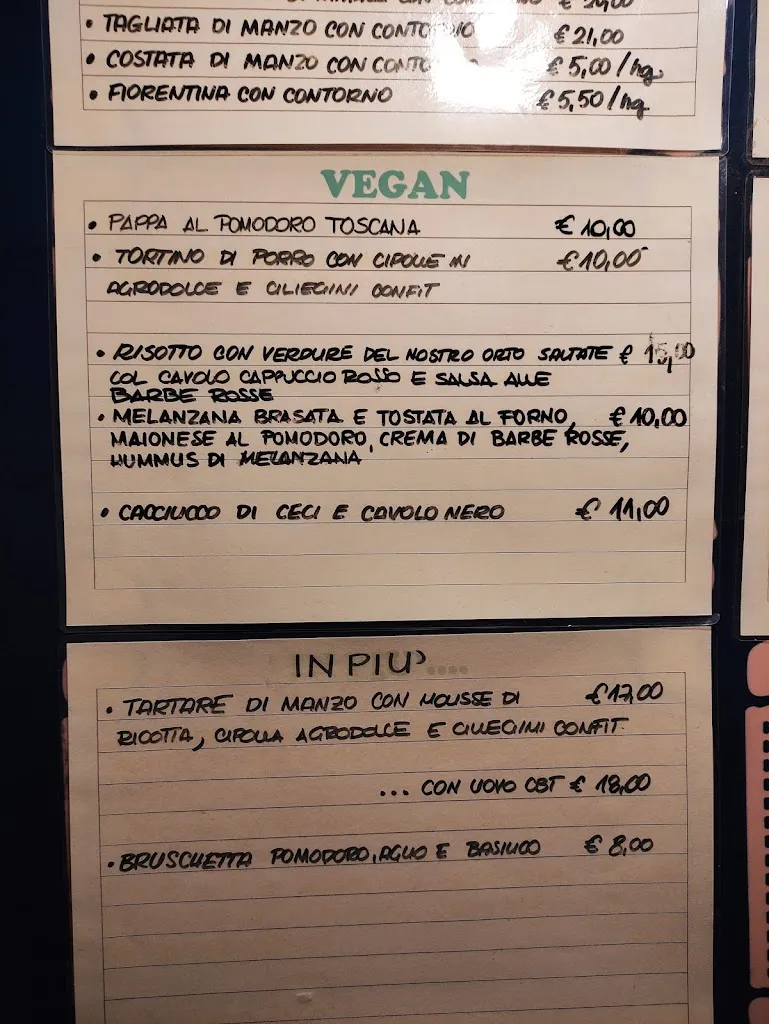 • TAGLIATA DI MANZO CON CONTORNO € 21,00
• COSTATA DI MANZO CON € 5,00/hg
• FIORENTINA CON CONTORNO € 5,50/hg
VEGAN
• PAPPA AL POMODORO TOSCANA € 10,00
• TORTINO DI PORRO CON CIPOLLE IN € 10,00
AGRODOLCE E CILIEGINI CONFIT
• RISOTTO CON VERDURE DEL NOSTRO ORTO SALTATE € 15,00
COL CAVOLO CAPPUCCIO ROSSO E SALSA ALLE
BARBE ROSSE
• MELANZANA BRASATA E TOSTATA AL FORNO, € 10,00
MAIONESE AL POMODORO, CREMA DI BARBE ROSSE,
HUMMUS DI MELANZANA
• CACCIUCCO DI CECI E CAVOLO NERO € 11,00
IN PIU'....
• TARTARE DI MANZO CON MOUSSE DI € 17,00
RICOTTA, CIPOLLA AGRODOLCE E CILIEGINI CONFIT
... CON UOVO CBT € 18,00
• BRUSCHETTA POMODORO, AGLIO E BASILICO € 8,00